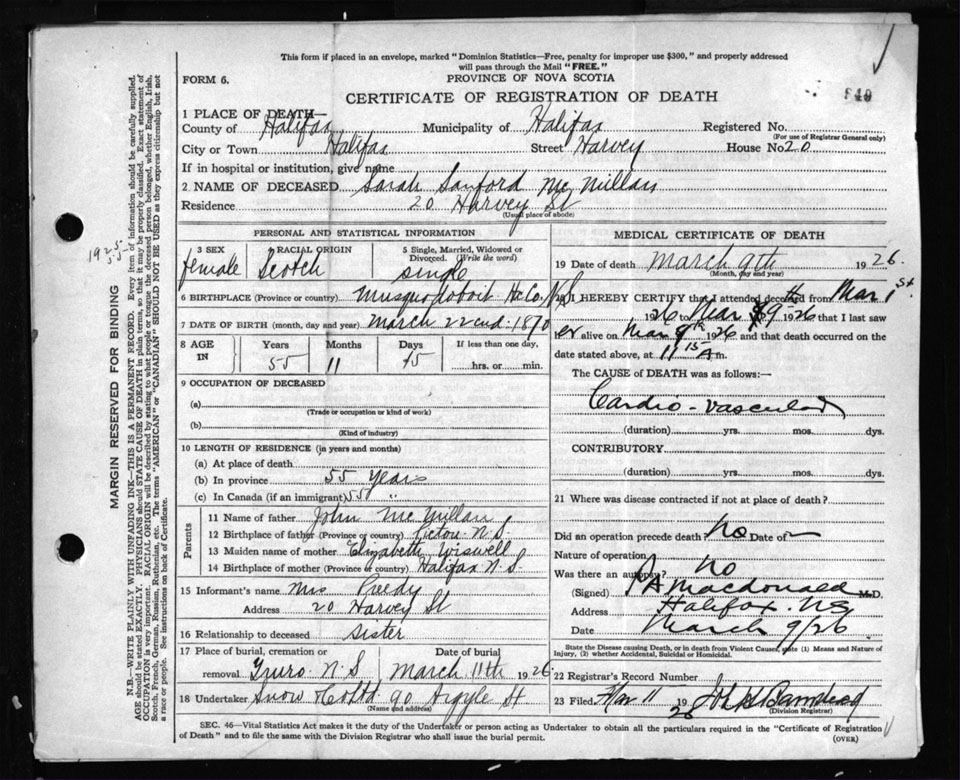 This form if placed in an envelope, marked "Dominion Statistics—Free, penalty for improper use $300," and properly addressed
will pass through the Mail "FREE."
FORM 6.
PROVINCE OF NOVA SCOTIA
CERTIFICATE OF REGISTRATION OF DEATH
1 PLACE OF DEATH—
County of Halifax Municipality of Halifax Registered No.
(For use of Registrar General only)
City or Town Halifax Street Harvey House No 20
If in hospital or institution, give name
2 NAME OF DECEASED Sarah Sanford McMillan
Residence 20 Harvey St
(Usual place of abode)
PERSONAL AND STATISTICAL INFORMATION
3 SEX female
RACIAL ORIGIN Scotch
5 Single, Married, Widowed or
Divorced. (Write the word)
single
6 BIRTHPLACE (Province or country) Musquodoboit Hx Co. N.S
7 DATE OF BIRTH (month, day and year) March 22nd 1870
8 AGE IN Years Months Days If less than one day,
55 11 15 ......hrs. or ......min.
9 OCCUPATION OF DECEASED
(a)
(Trade or occupation or kind of work)
(b)
(Kind of industry)
10 LENGTH OF RESIDENCE (in years and months)
(a) At place of death
(b) In province 55 years
(c) In Canada (if an immigrant) 55 "
Parents
11 Name of father John McMillan
12 Birthplace of father (Province or country) Pictou N.S.
13 Maiden name of mother Elizabeth Wiswell
14 Birthplace of mother (Province or country) Halifax N.S.
15 Informant's name Mrs Predy
Address 20 Harvey St
16 Relationship to deceased sister
17 Place of burial, cremation or Date of burial
removal Truro. N.S March 11th 1926
18 Undertaker Snow & Co Ltd 90 Argyle St
(Name and address)
MEDICAL CERTIFICATE OF DEATH
19 Date of death March 9th 1926.
(Month, day and year)
20 I HEREBY CERTIFY that I attended deceased from Mar 1st
1926 to Mar 9th 1926 that I last saw
her alive on Mar 9th 1926 and that death occurred on the
date stated above, at 11 15 A m.
The CAUSE of DEATH was as follows:—
Cardio-vascular
(duration) yrs. mos. dys.
CONTRIBUTORY
(duration) yrs. mos. dys.
21 Where was disease contracted if not at place of death?
Did an operation precede death? No Date of —
Nature of operation
Was there an autopsy? No
(Signed) A Macdonald M.D.
Address Halifax. N.S
Date March 9/26
State the Disease causing Death, or in death from Violent Causes, state (1) Means and Nature of
Injury, (2) whether Accidental, Suicidal or Homicidal.
22 Registrar's Record Number
23 Filed Mar 11 1926
(Division Registrar)
SEC. 46—Vital Statistics Act makes it the duty of the Undertaker or person acting as Undertaker to obtain all the particulars required in the "Certificate of Registration
of Death" and to file the same with the Division Registrar who shall issue the burial permit.
(OVER)
MARGIN RESERVED FOR BINDING
N.B.—WRITE PLAINLY WITH UNFADING INK—THIS IS A PERMANENT RECORD. Every item of information should be carefully supplied.
AGE should be stated EXACTLY. PHYSICIANS should STATE CAUSE OF DEATH in plain terms, so that it may be properly classified. Exact statement of
OCCUPATION is very important. RACIAL ORIGIN will be described by stating to what people or tongue the deceased person belonged, whether English, Irish,
Scotch, French, German, Russian, Ruthenian, etc. The terms "AMERICAN" or "CANADIAN" SHOULD NOT BE USED as they express citizenship but not
a race or people. See instructions on back of Certificate.